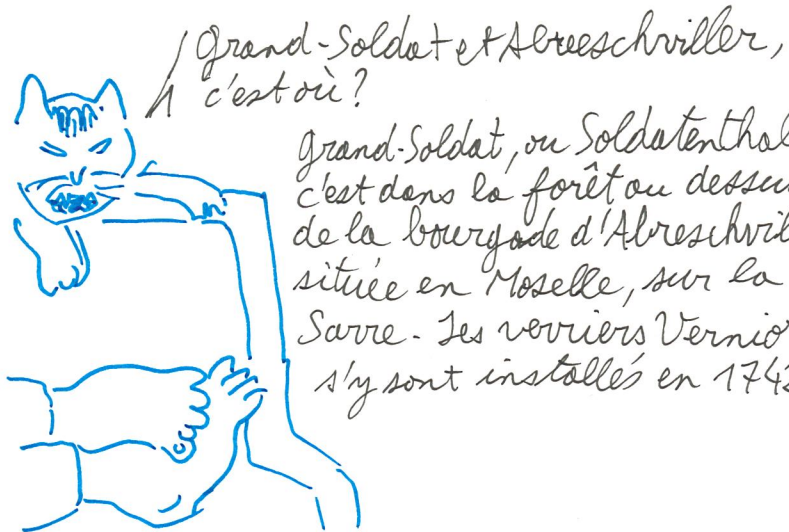 Grand-Soldat et Abreeschviller,
c'est où?
Grand-Soldat, ou Soldatenthal
c'est dans la forêt au dessu
de la bourgade d'Abreschvil
située en Moselle, sur la
Sarre. Les verriers Vernio
s'y sont installés en 1742